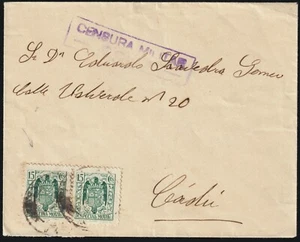 CENSURA MILITAR
Sr. Dn Eduardo Saavedra Gomez
Calle Valverde nº 20
Cádiz
15 15